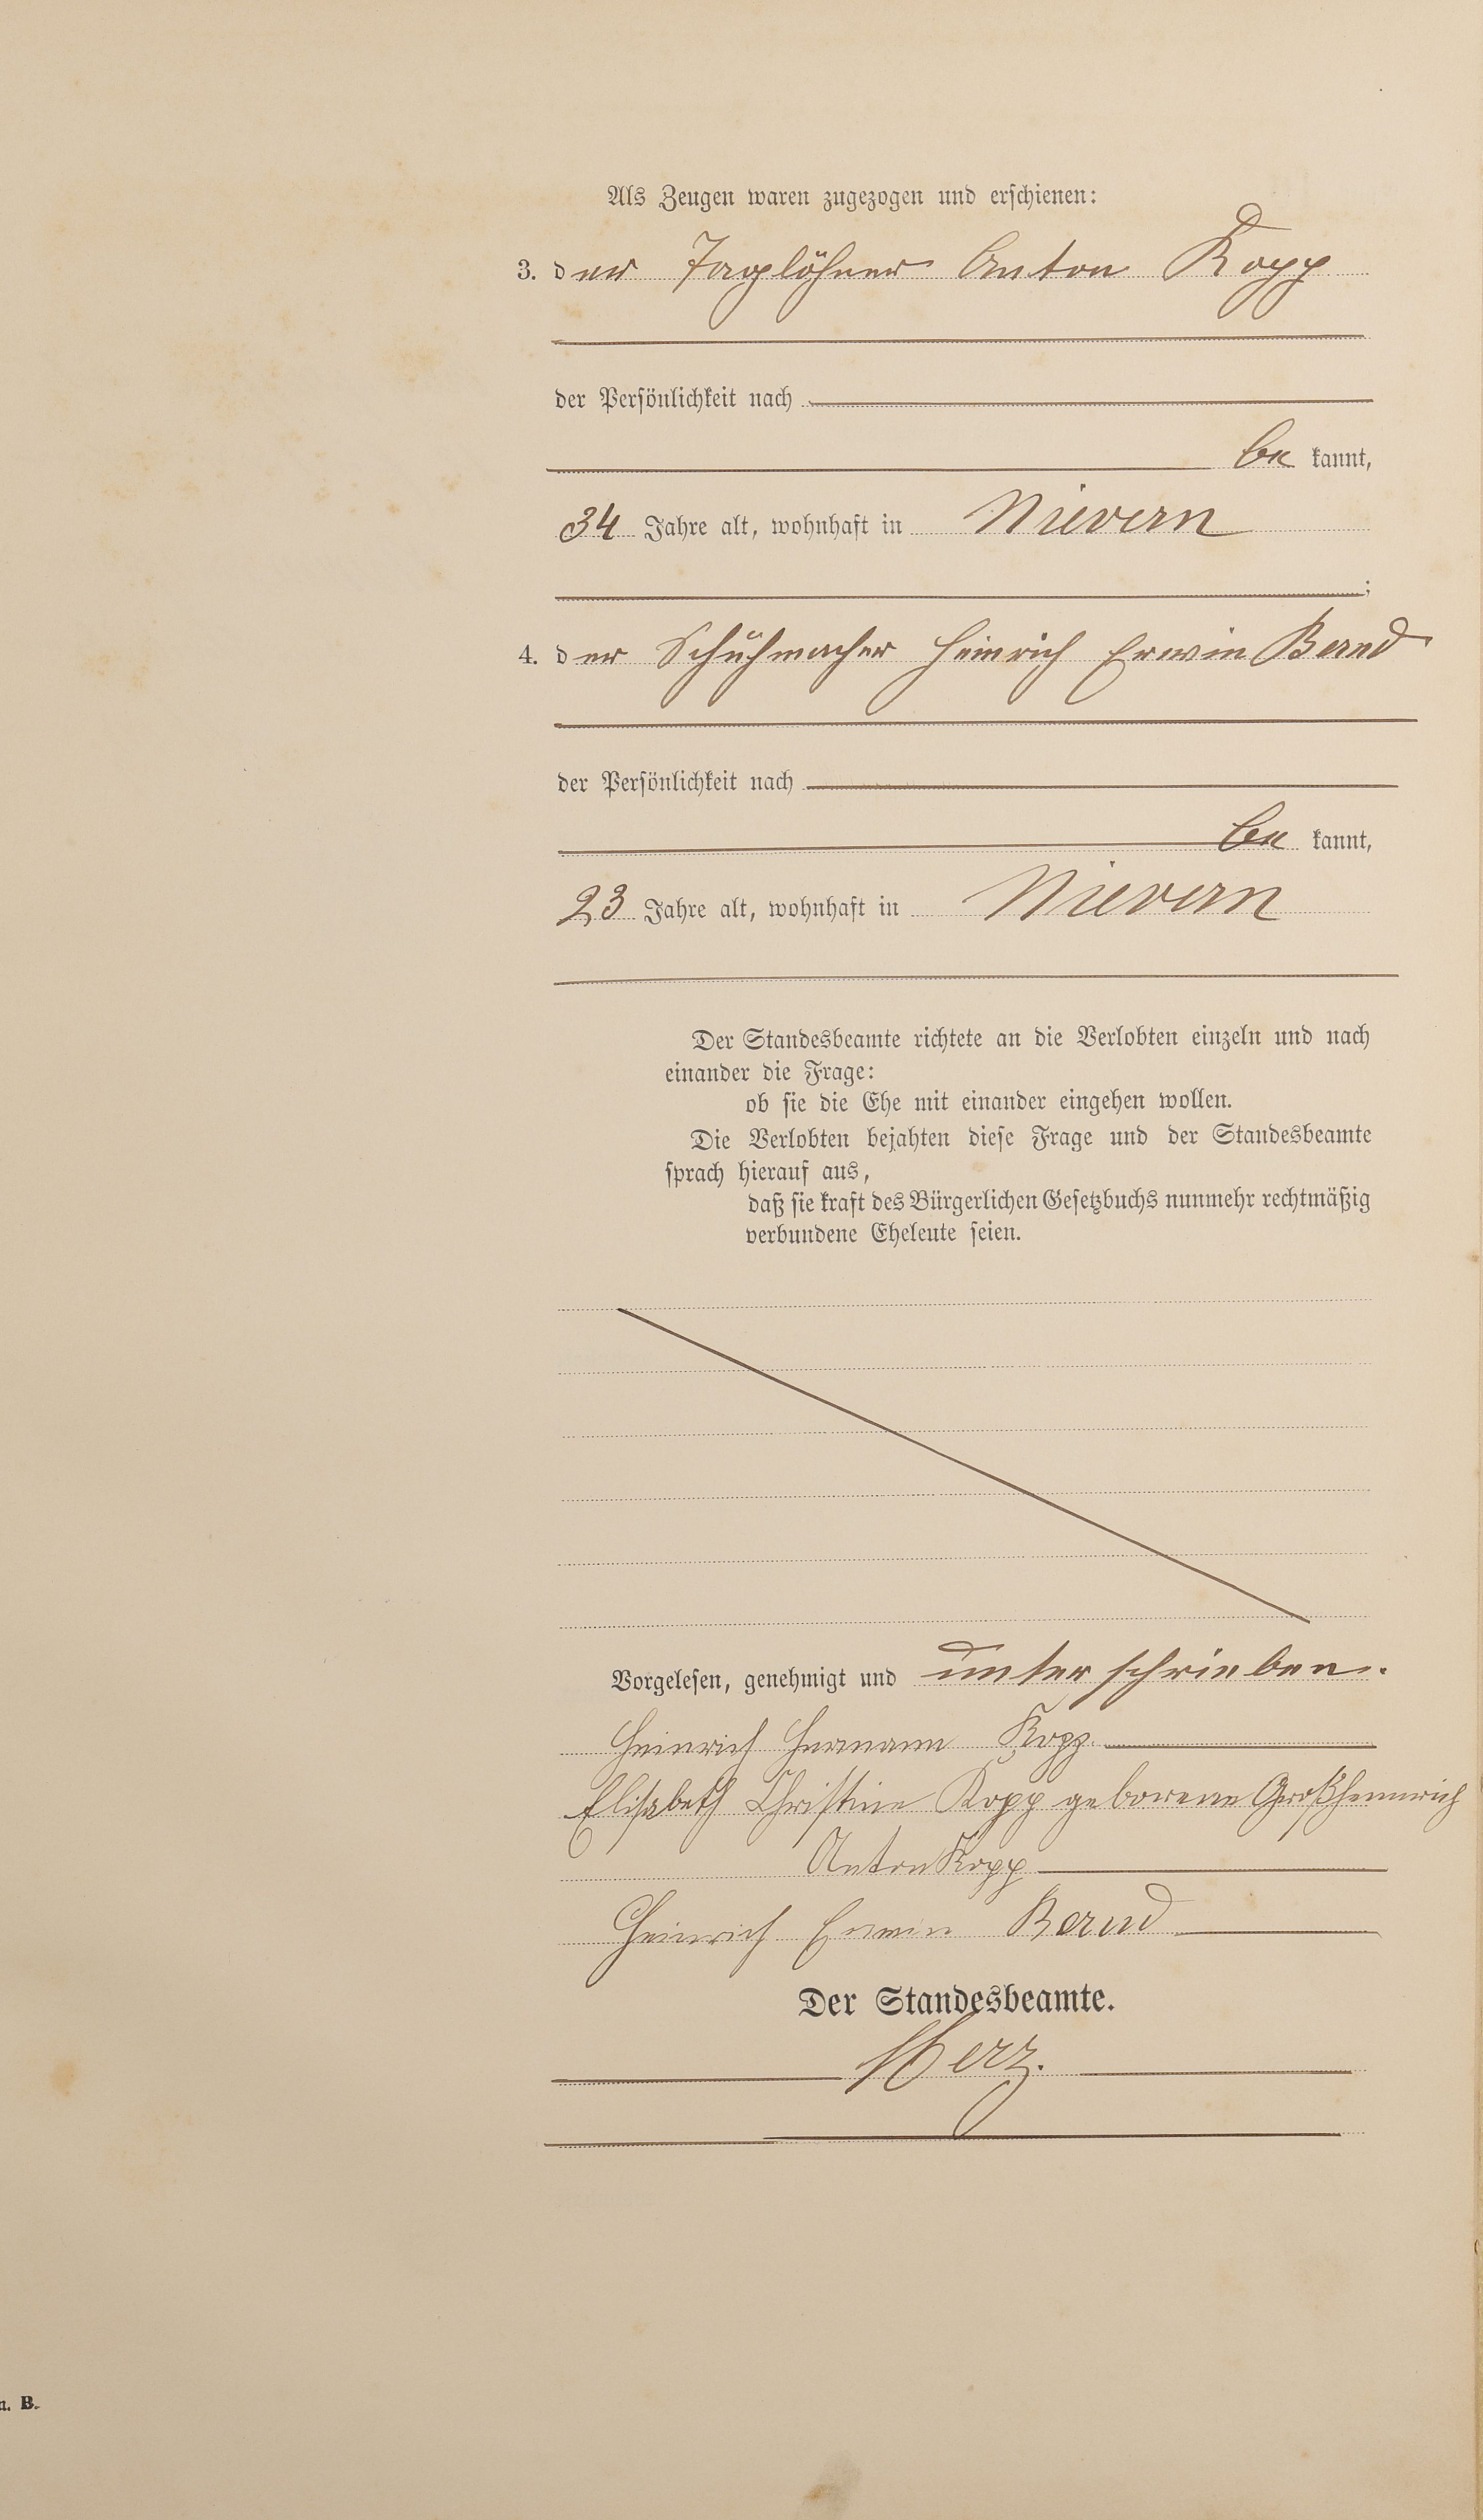 Als Zeugen waren zugezogen und erschienen:
3. der Taglöhner Anton Kopp
der Persönlichkeit nach
be kannt,
34 Jahre alt, wohnhaft in Nievern
;
4. der Schuhmacher Heinrich Erwin Bernd
der Persönlichkeit nach
be kannt,
23 Jahre alt, wohnhaft in Nievern
Der Standesbeamte richtete an die Verlobten einzeln und nach
einander die Frage:
ob sie die Ehe mit einander eingehen wollen.
Die Verlobten bejahten diese Frage und der Standesbeamte
sprach hierauf aus,
daß sie kraft des Bürgerlichen Gesetzbuchs nunmehr rechtmäßig
verbundene Eheleute seien.
Vorgelesen, genehmigt und unterschrieben.
Heinrich Hermann Kopp.
Elisabeth Christine Kopp geborene Großhennrich
Anton Kopp
Heinrich Erwin Bernd
Der Standesbeamte.
Herz.
B.